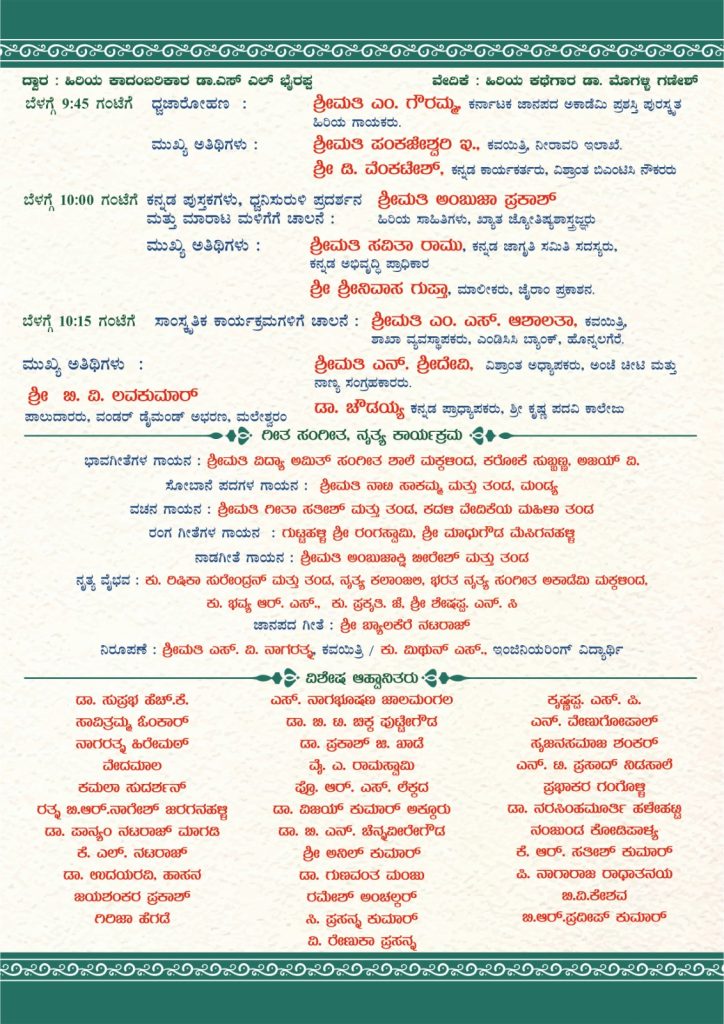 ದ್ವಾರ : ಹಿರಿಯ ಕಾದಂಬರಿಕಾರ ಡಾ.ಎಸ್ ಎಲ್ ಭೈರಪ್ಪ ವೇದಿಕೆ : ಹಿರಿಯ ಕಥೆಗಾರ ಡಾ. ಮೊಗಳ್ಳಿ ಗಣೇಶ್
ಬೆಳಗ್ಗೆ 9:45 ಗಂಟೆಗೆ ಧ್ವಜಾರೋಹಣ : ಶ್ರೀಮತಿ ಎಂ. ಗೌರಮ್ಮ, ಕರ್ನಾಟಕ ಜಾನಪದ ಅಕಾಡೆಮಿ ಪ್ರಶಸ್ತಿ ಪುರಸ್ಕೃತ
ಹಿರಿಯ ಗಾಯಕರು.
ಮುಖ್ಯ ಅತಿಥಿಗಳು : ಶ್ರೀಮತಿ ಪಂಕಜೇಶ್ವರಿ ಇ., ಕವಯಿತ್ರಿ, ನೀರಾವರಿ ಇಲಾಖೆ.
ಶ್ರೀ ಡಿ. ವೆಂಕಟೇಶ್, ಕನ್ನಡ ಕಾರ್ಯಕರ್ತರು, ವಿಶ್ರಾಂತ ಬಿಎಂಟಿಸಿ ನೌಕರರು
ಬೆಳಗ್ಗೆ 10:00 ಗಂಟೆಗೆ ಕನ್ನಡ ಪುಸ್ತಕಗಳು, ಧ್ವನಿಸುರುಳಿ ಪ್ರದರ್ಶನ ಶ್ರೀಮತಿ ಅಂಬುಜಾ ಪ್ರಕಾಶ್
ಮತ್ತು ಮಾರಾಟ ಮಳಿಗೆಗೆ ಚಾಲನೆ : ಹಿರಿಯ ಸಾಹಿತಿಗಳು, ಖ್ಯಾತ ಜ್ಯೋತಿಷ್ಯಶಾಸ್ತ್ರಜ್ಞರು
ಮುಖ್ಯ ಅತಿಥಿಗಳು : ಶ್ರೀಮತಿ ಸವಿತಾ ರಾಮು, ಕನ್ನಡ ಜಾಗೃತಿ ಸಮಿತಿ ಸದಸ್ಯರು,
ಕನ್ನಡ ಅಭಿವೃದ್ಧಿ ಪ್ರಾಧಿಕಾರ
ಶ್ರೀ ಶ್ರೀನಿವಾಸ ಗುಪ್ತಾ, ಮಾಲೀಕರು, ಜೈರಾಂ ಪ್ರಕಾಶನ.
ಬೆಳಗ್ಗೆ 10:15 ಗಂಟೆಗೆ ಸಾಂಸ್ಕೃತಿಕ ಕಾರ್ಯಕ್ರಮಗಳಿಗೆ ಚಾಲನೆ : ಶ್ರೀಮತಿ ಎಂ. ಎಸ್. ಆಶಾಲತಾ, ಕವಯಿತ್ರಿ,
ಶಾಖಾ ವ್ಯವಸ್ಥಾಪಕರು, ಎಂಡಿಸಿಸಿ ಬ್ಯಾಂಕ್, ಹೊನ್ನಲಗೆರೆ.
ಮುಖ್ಯ ಅತಿಥಿಗಳು : ಶ್ರೀಮತಿ ಎನ್. ಶ್ರೀದೇವಿ, ವಿಶ್ರಾಂತ ಅಧ್ಯಾಪಕರು, ಅಂಚೆ ಚೀಟಿ ಮತ್ತು
ನಾಣ್ಯ ಸಂಗ್ರಹಕಾರರು.
ಶ್ರೀ ಬಿ. ವಿ. ಲವಕುಮಾರ್
ಪಾಲುದಾರರು, ವಂಡರ್ ಡೈಮಂಡ್ ಅಭರಣ, ಮಲೇಶ್ವರಂ ಡಾ. ಚೌಡಯ್ಯ ಕನ್ನಡ ಪ್ರಾಧ್ಯಾಪಕರು, ಶ್ರೀ ಕೃಷ್ಣ ಪದವಿ ಕಾಲೇಜು
ಗೀತ ಸಂಗೀತ, ನೃತ್ಯ ಕಾರ್ಯಕ್ರಮ
ಭಾವಗೀತೆಗಳ ಗಾಯನ : ಶ್ರೀಮತಿ ವಿದ್ಯಾ ಅಮಿತ್ ಸಂಗೀತ ಶಾಲೆ ಮಕ್ಕಳಿಂದ, ಕರೋಕೆ ಸುಬ್ಬಣ್ಣ, ಅಜಯ್ ವಿ.
ಸೋಬಾನೆ ಪದಗಳ ಗಾಯನ : ಶ್ರೀಮತಿ ನಾಟಿ ಸಾಕಮ್ಮ ಮತ್ತು ತಂಡ, ಮಂಡ್ಯ
ವಚನ ಗಾಯನ : ಶ್ರೀಮತಿ ಗೀತಾ ಸತೀಶ್ ಮತ್ತು ತಂಡ, ಕದಳಿ ವೇದಿಕೆಯ ಮಹಿಳಾ ತಂಡ
ರಂಗ ಗೀತೆಗಳ ಗಾಯನ : ಗುಟ್ಟಹಳ್ಳಿ ಶ್ರೀ ರಂಗಸ್ವಾಮಿ, ಶ್ರೀ ಮಾಧುಗೌಡ ಮೆಸಿಗನಹಳ್ಳಿ
ನಾಡಗೀತೆ ಗಾಯನ : ಶ್ರೀಮತಿ ಅಂಬುಜಾಕ್ಷಿ ಬೀರೇಶ್ ಮತ್ತು ತಂಡ
ನೃತ್ಯ ವೈಭವ : ಕು. ರಿಷಿಕಾ ಸುರೇಂದ್ರನ್ ಮತ್ತು ತಂಡ, ನೃತ್ಯ ಕಲಾಂಜಲಿ, ಭರತ ನೃತ್ಯ ಸಂಗೀತ ಅಕಾಡೆಮಿ ಮಕ್ಕಳಿಂದ,
ಕು. ಭವ್ಯ ಆರ್. ಎಸ್., ಕು. ಪ್ರಕೃತಿ. ಜೆ, ಶ್ರೀ ಶೇಷಪ್ಪ. ಎನ್. ಸಿ
ಜಾನಪದ ಗೀತೆ : ಶ್ರೀ ಬ್ಯಾಲಕೆರೆ ನಟರಾಜ್
ನಿರೂಪಣೆ : ಶ್ರೀಮತಿ ಎಸ್. ವಿ. ನಾಗರತ್ನ, ಕವಯಿತ್ರಿ / ಕು. ಮಿಥುನ್ ಎಸ್., ಇಂಜಿನಿಯರಿಂಗ್ ವಿದ್ಯಾರ್ಥಿ
ವಿಶೇಷ ಆಹ್ವಾನಿತರು
ಡಾ. ಸುಪ್ರಭ ಹೆಚ್.ಕೆ. ಎಸ್. ನಾಗಭೂಷಣ ಜಾಲಮಂಗಲ ಕೃಷ್ಣಪ್ಪ. ಎಸ್. ಪಿ.
ಸಾವಿತ್ರಮ್ಮ ಓಂಕಾರ್ ಡಾ. ಬಿ. ಟಿ. ಚಿಕ್ಕ ಪುಟ್ಟೇಗೌಡ ಎನ್. ವೇಣುಗೋಪಾಲ್
ನಾಗರತ್ನ ಹಿರೇಮಠ್ ಡಾ. ಪ್ರಕಾಶ್ ಜಿ. ಖಾಡೆ ಸೃಜನಸಮಾಜ ಶಂಕರ್
ವೇದಮಾಲ ವೈ. ಎ. ರಾಮಸ್ವಾಮಿ ಎನ್. ಟಿ. ಪ್ರಸಾದ್ ನಿಡಸಾಲೆ
ಕಮಲಾ ಸುದರ್ಶನ್ ಪ್ರೊ. ಆರ್. ಎಸ್. ಲೆಕ್ಕದ ಪ್ರಭಾಕರ ಗಂಗೊಳ್ಳಿ
ರತ್ನ ಬಿ.ಆರ್.ನಾಗೇಶ್ ಜರಗನಹಳ್ಳಿ ಡಾ. ವಿಜಯ್ ಕುಮಾರ್ ಅಕ್ಕೂರು ಡಾ. ನರಸಿಂಹಮೂರ್ತಿ ಹಳೇಹಟ್ಟಿ
ಡಾ. ಪಾನ್ಯಂ ನಟರಾಜ್ ಮಾಗಡಿ ಡಾ. ಬಿ. ಎನ್. ಚೆನ್ನವೀರೇಗೌಡ ನಂಜುಂಡ ಕೋಡಿಪಾಳ್ಯ
ಕೆ. ಎಲ್. ನಟರಾಜ್ ಶ್ರೀ ಅನಿಲ್ ಕುಮಾರ್ ಕೆ. ಆರ್. ಸತೀಶ್ ಕುಮಾರ್
ಡಾ. ಉದಯರವಿ, ಹಾಸನ ಡಾ. ಗುಣವಂತ ಮಂಜು ಪಿ. ನಾಗಾರಾಜ ರಾಧಾತನಯ
ಜಯಶಂಕರ ಪ್ರಕಾಶ್ ರಮೇಶ್ ಅಂಚಲ್ಕರ್ ಬಿ.ವಿ.ಕೇಶವ
ಗಿರಿಜಾ ಹೆಗಡೆ ಸಿ. ಪ್ರಸನ್ನ ಕುಮಾರ್ ಬಿ.ಆರ್.ಪ್ರದೀಪ್ ಕುಮಾರ್
ವಿ. ರೇಣುಕಾ ಪ್ರಸನ್ನ